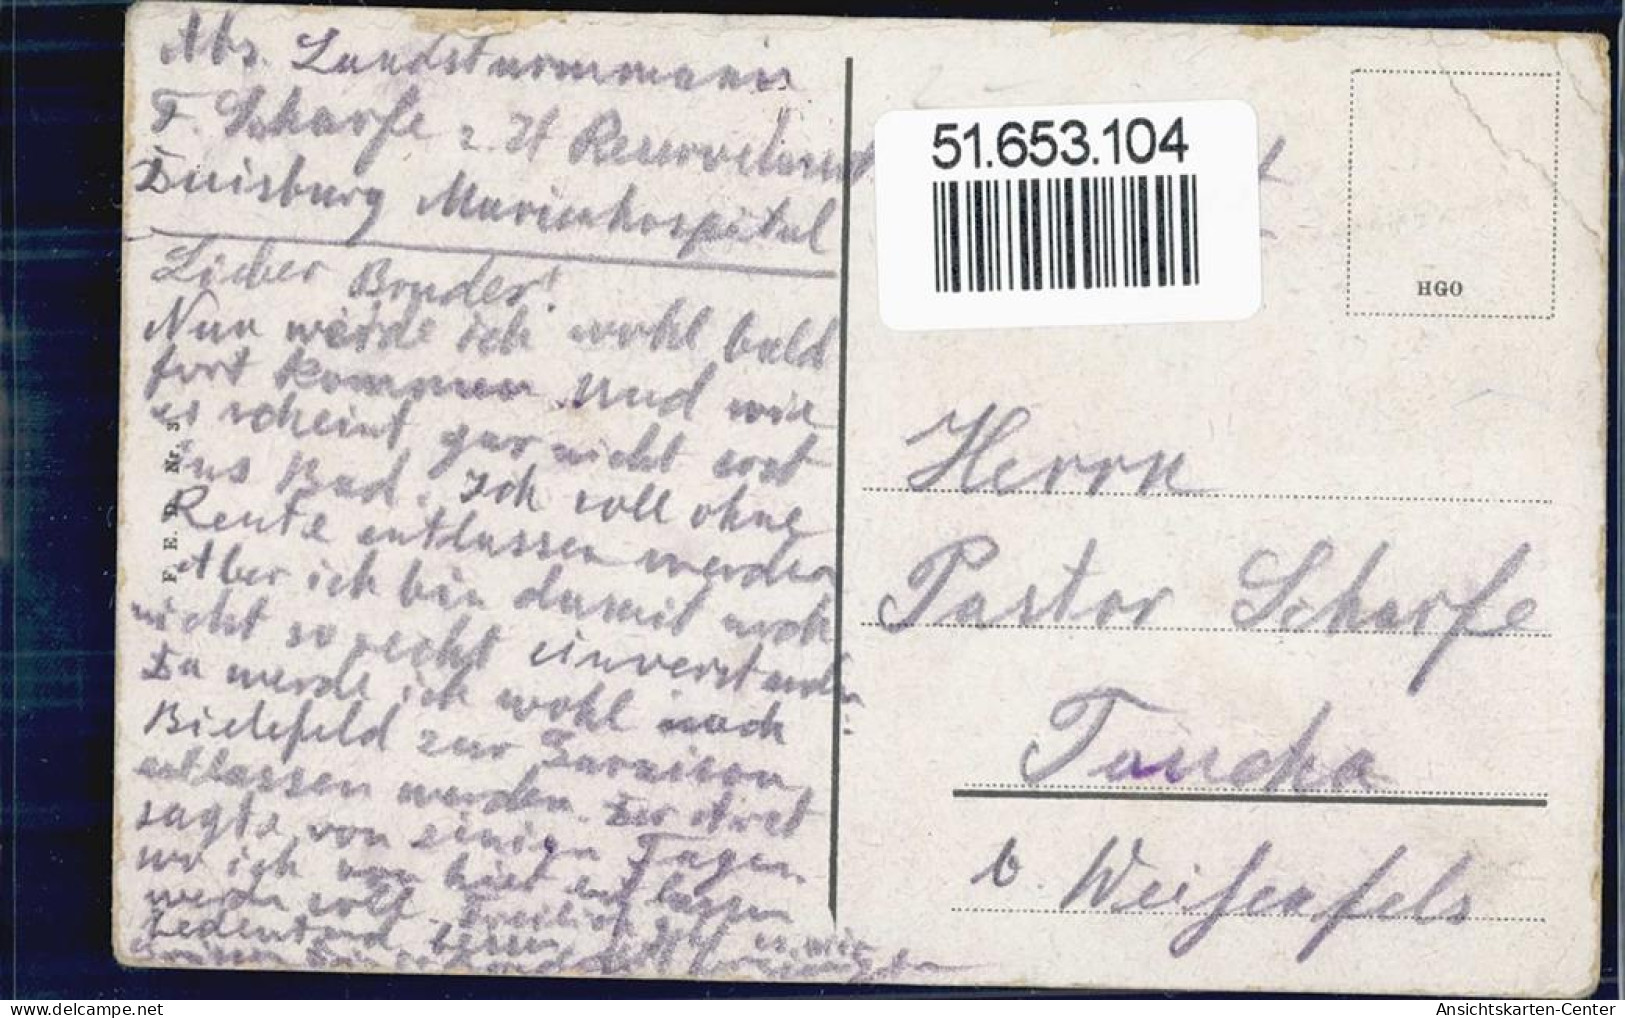 Abs. Landsturmmann
F. Scharfe z. Zt Reservelazaret
Duisburg Marienhospital
Lieber Bruder!
Nun werde ich wohl bald
fort kommen und wie
es scheint gar nicht erst
ins Bad. Ich soll ohne
Rente entlassen werden
Aber ich bin damit noch
nicht so recht einverstanden
Da werde ich wohl nach
Bielefeld zur Garnison
entlassen werden. Der Arzt
sagte von einigen Tagen
wo ich von hier entlassen
werden soll. Freilich geht es mir
bedeutend besser
51.653.104
HGO
Herrn
Pastor Scharfe
Taucha
b. Weißenfels
F. E. D. Nr. 3
Ansichtskarten-Center